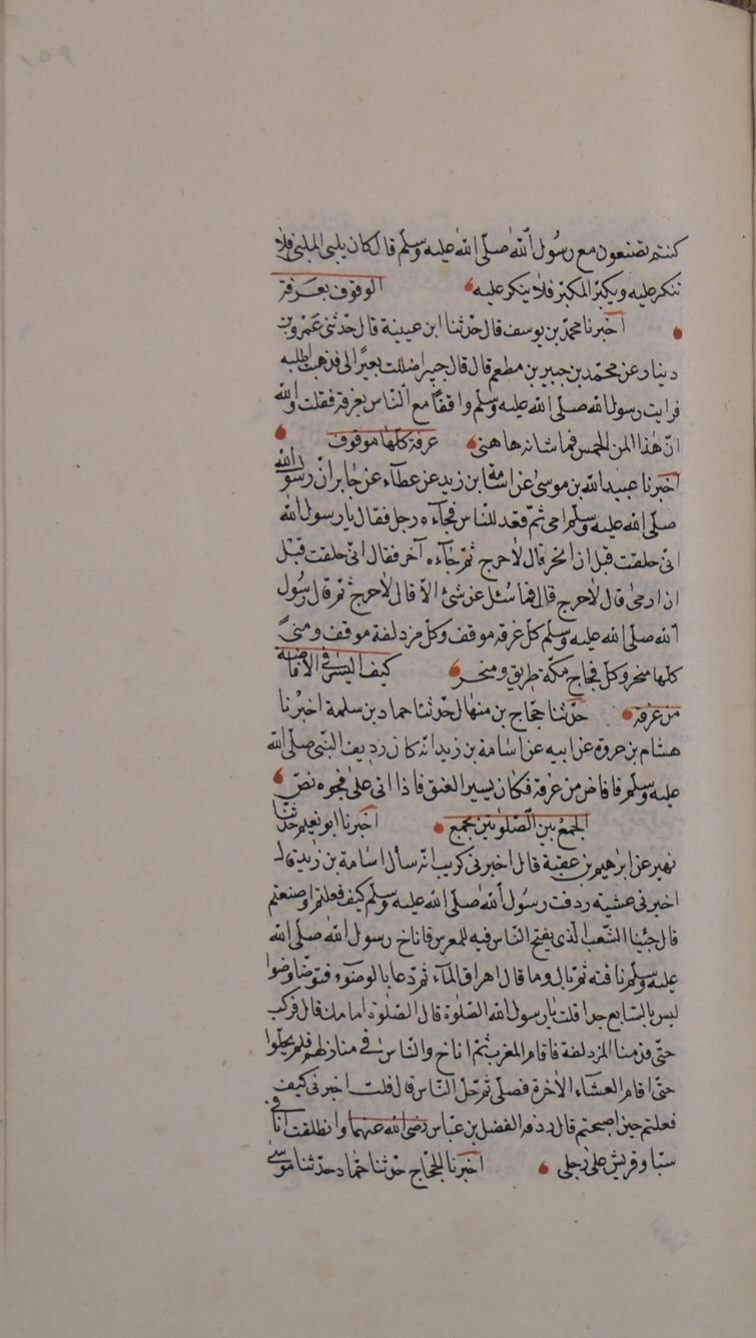 كنتم تصنعون مع رسول الله صلى الله عليه وسلم قال كان يلبى الملبى فلا
ننكر عليه ويكبر المكبر فلا ينكر عليه الوقوف بعرفة
اخبرنا محمد بن يوسف قال حدثنا ابن عيينة قال حدثنى عمرو بن
دينار عن محمد بن جبير بن مطعم قال قال جبير اضللت بعيرا لى فذهبت اطلبه
فرايت رسول الله صلى الله عليه وسلم واقفا مع الناس بعرفة فقلت والله
ان هذا لمن الحمس فما شانه هاهنا عرفة كلها موقوف
اخبرنا عبيد الله بن موسى عن اسامة بن زيد عن عطاء عن جابر ان رسول الله
صلى الله عليه وسلم رمى ثم قعد للناس فجاءه رجل فقال يا رسول الله
انى حلقت قبل ان انحر قال لا حرج ثم جاءه آخر فقال انى حلقت قبل
ان ارمى قال لا حرج قال فما سئل عن شئ الا قال لا حرج ثم قال رسول
الله صلى الله عليه وسلم كل عرفة موقف وكل مزدلفة موقف ومنى
كلها منحر وكل فجاج مكة طريق ومنحر كيف السير فى الافاضة
من عرفة حدثنا حجاج بن منهال حدثنا حماد بن سلمة اخبرنا
هشام بن عروة عن ابيه عن اسامة بن زيد انه كان رديف النبى صلى الله
عليه وسلم فافاض من عرفة فكان يسير العنق فاذا اتى على فجوه نص
الجمع بين الصلوتين بجمع اخبرنا ابو نعيم حدثنا
زهير عن ابرهيم بن عقبة قال اخبرنى كريب انه سأل اسامة بن زيد قال
اخبرنى عشية ردفت رسول الله صلى الله عليه وسلم كيف فعلتم او صنعتم
قال جئنا الشعب الذى ينيخ الناس فيه للمعرس فاناخ رسول الله صلى الله
عليه وسلم ناقته ثم بال وما قال اهراق الماء ثم دعا بالوضوء فتوضا وضوا
ليس بالسابغ جدا قلت يا رسول الله الصلوة قال الصلوة امامك قال فركب
حتى قدمنا المزدلفة فاقام المغرب ثم اناخ والناس فى منازلهم فلم يحلوا
حتى اقام العشاء الآخرة فصلى ثم حل الناس قال قلت اخبرنى كيف
فعلتم حين اصبحتم قال ردفه الفضل بن عباس رضى الله عنهما وانطلقت انا فى
سباق قريش على رجلى اخبرنا الحجاج حدثنا حماد حدثنا موسى